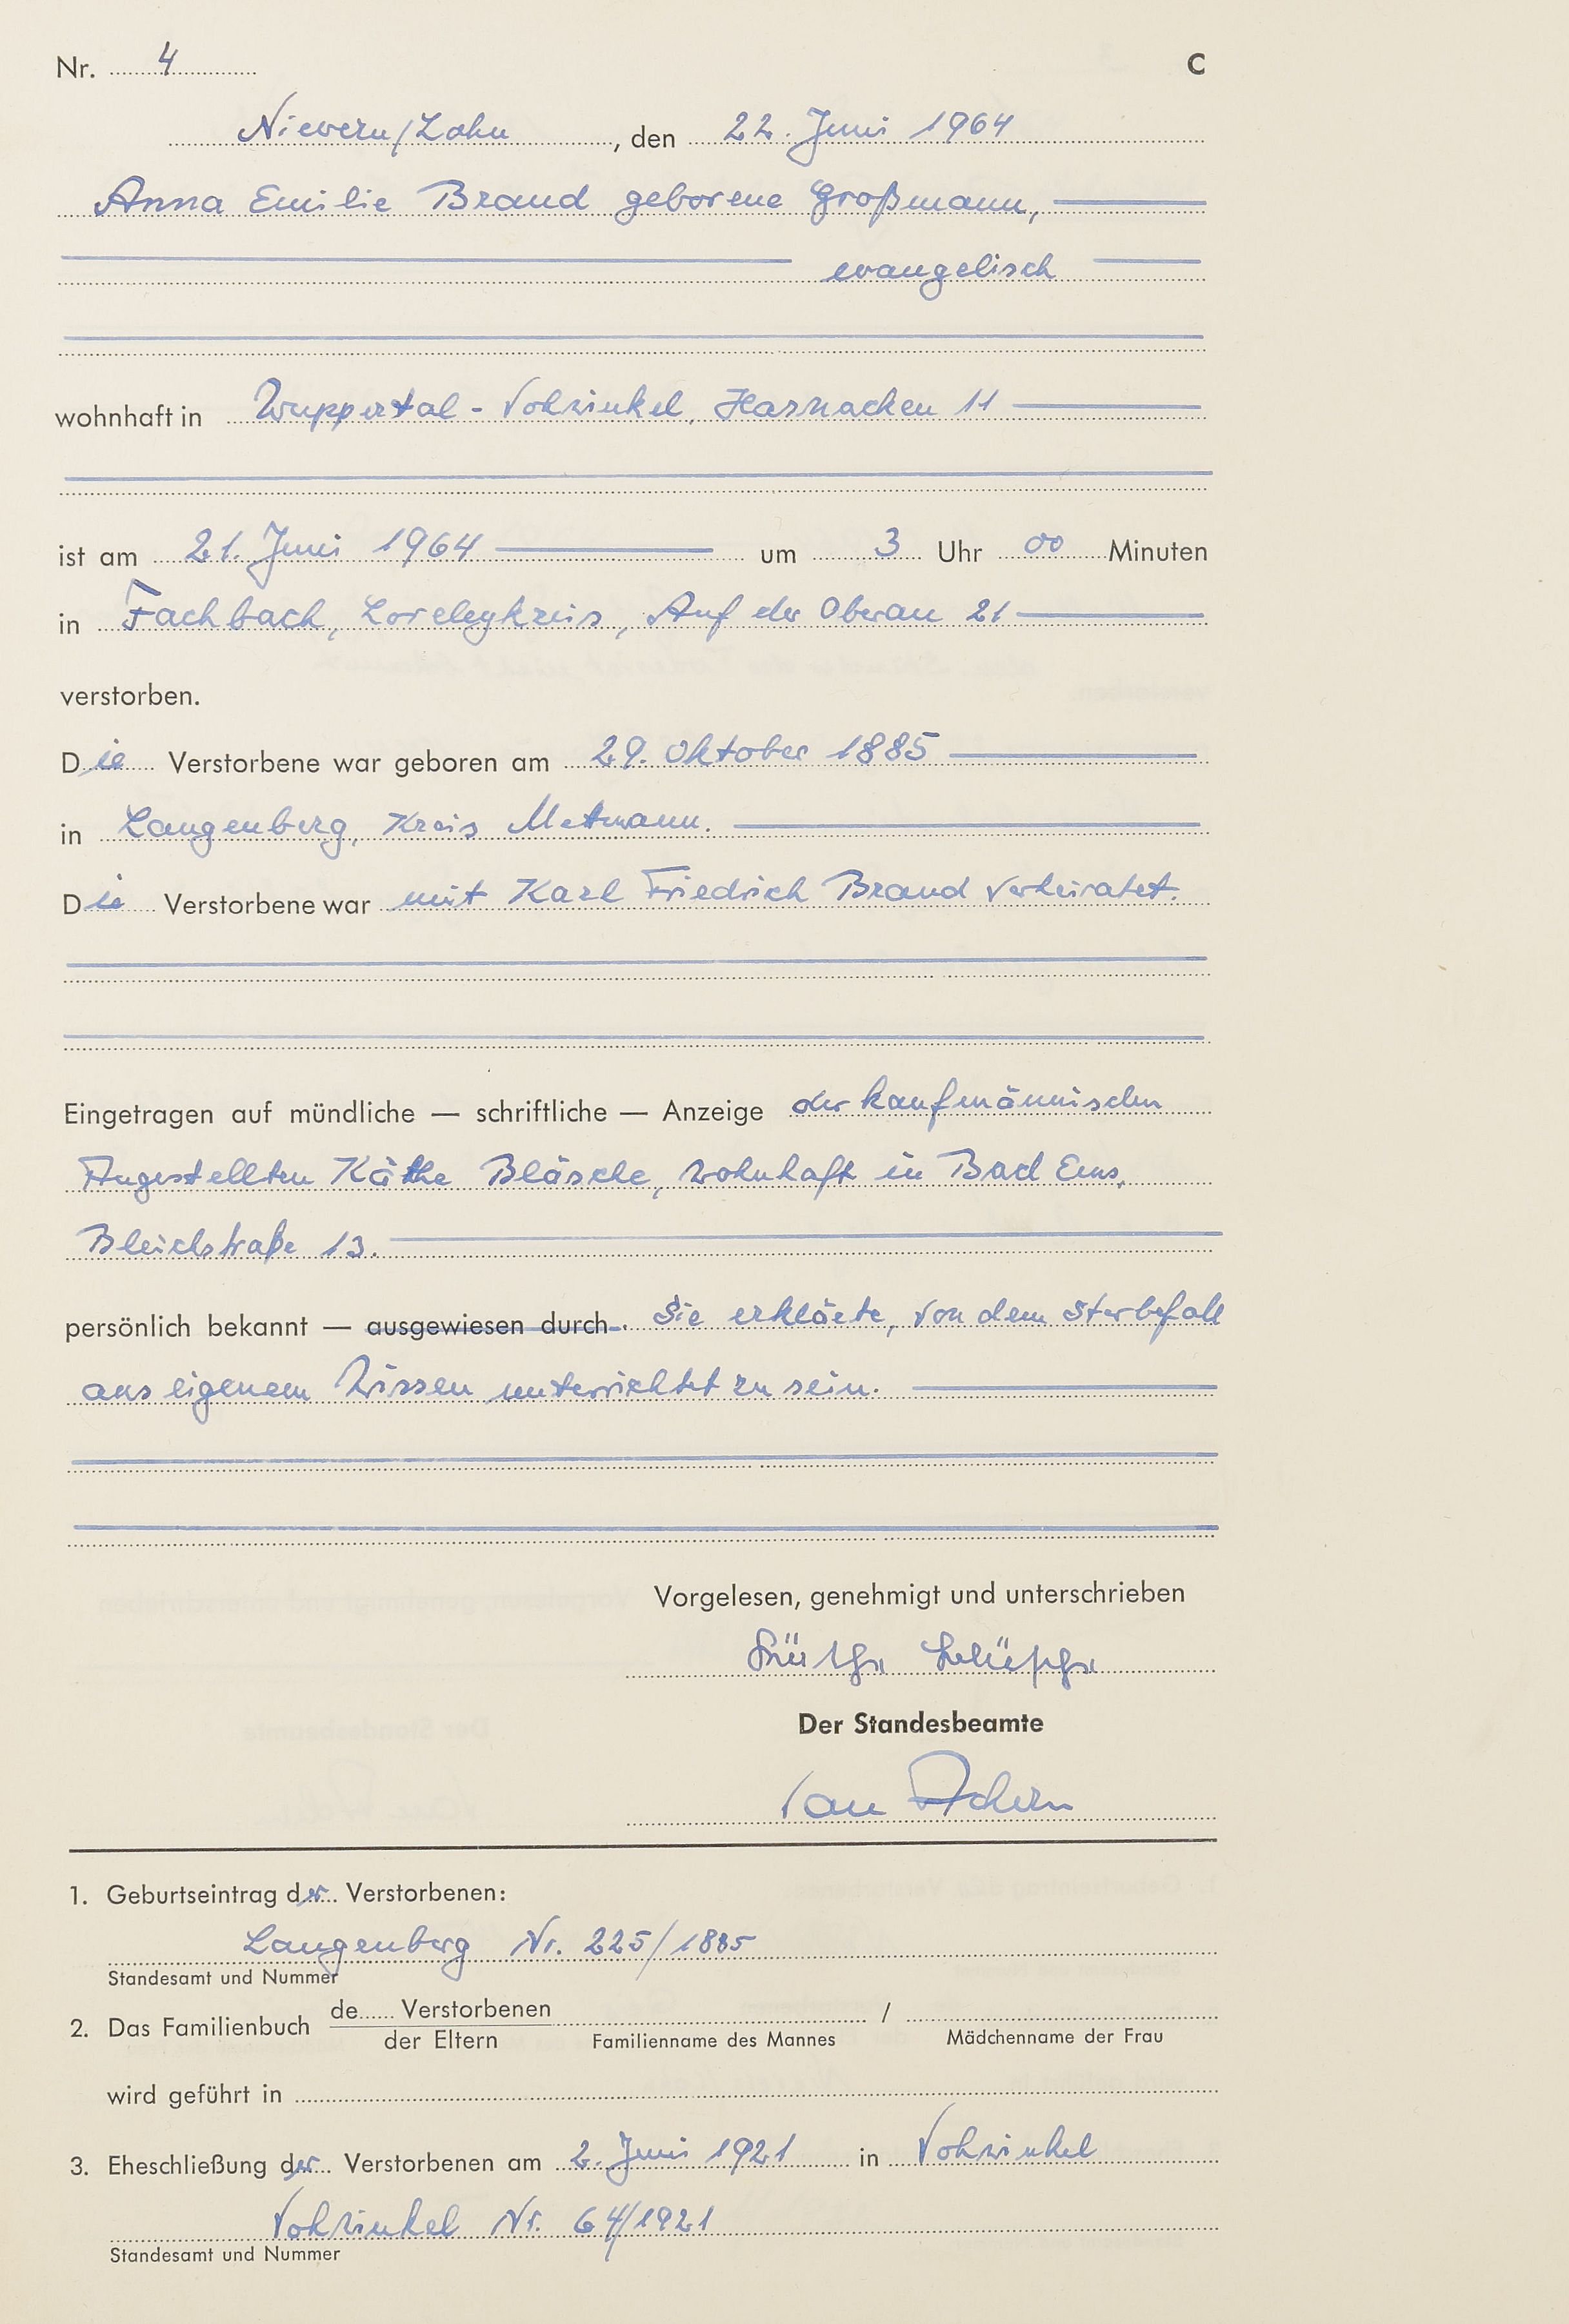 Nr. 4 C
Nievern/Lahn, den 22. Juni 1964
Anna Emilie Brand geborene Großmann,
evangelisch
wohnhaft in Wuppertal-Vohwinkel, Harnacken 11
ist am 21. Juni 1964 um 3 Uhr 00 Minuten
in Fachbach, Loreleykreis, Auf der Oberau 21
verstorben.
Die Verstorbene war geboren am 29. Oktober 1885
in Langenberg, Kreis Metmann.
Die Verstorbene war mit Karl Friedrich Brand verheiratet.
Eingetragen auf mündliche — schriftliche — Anzeige der kaufmännischen
Angestellten Käthe Bläsche, wohnhaft in Bad Ems,
Bleichstraße 13.
persönlich bekannt — ausgewiesen durch. Sie erklärte, von dem Sterbefall
aus eigenem Wissen unterrichtet zu sein.
Vorgelesen, genehmigt und unterschrieben
Käthe Bläsche
Der Standesbeamte
1. Geburtseintrag der Verstorbenen:
Langenberg Nr. 225/1885
Standesamt und Nummer
2. Das Familienbuch de...... Verstorbenen /
der Eltern Familienname des Mannes Mädchenname der Frau
wird geführt in
3. Eheschließung der Verstorbenen am 2. Juni 1921 in Vohwinkel
Vohwinkel Nr. 64/1921
Standesamt und Nummer